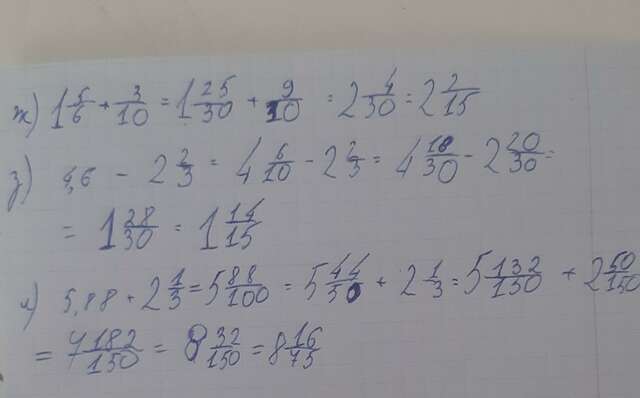 ж) 1 5/6 + 3/10 = 1 25/30 + 9/10 = 2 4/30 = 2 2/15
з) 4,6 - 2 2/3 = 4 6/10 - 2 2/3 = 4 18/30 - 2 20/30 =
= 1 28/30 = 1 14/15
и) 5,88 + 2 1/3 = 5 88/100 = 5 44/50 + 2 1/3 = 5 132/150 + 2 50/150
= 7 182/150 = 8 32/150 = 8 16/75